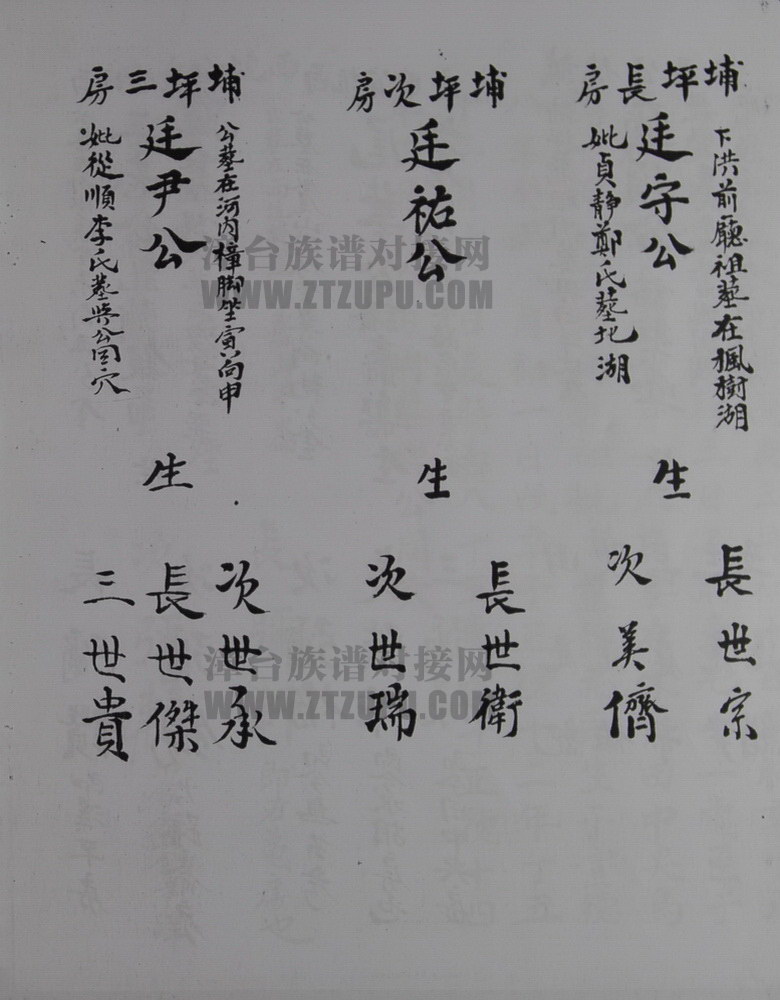 埔坪長房
下洪前廳祖墓在楓樹湖
廷守公
妣貞静鄭氏墓北湖
生
長世宗
次美儕
埔坪次房
廷祐公
生
長世衛
次世瑞
埔坪三房
公墓在河内樟脚坐寅向申
廷尹公
妣從順李氏墓與公同穴
生
次世承
長世傑
三世貴
漳台族谱对接网
WWW.ZTZUPU.COM
漳台族谱对接网
WWW.ZTZUPU.COM